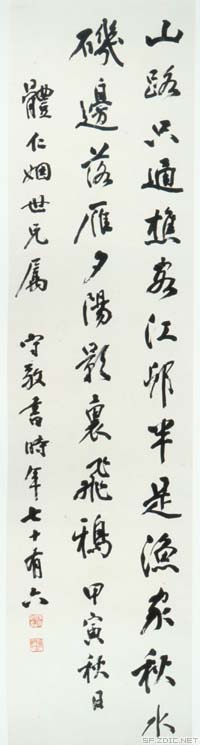 山路只通樵客江邨半是漁家秋水
磯邊落雁夕陽影裏飛鴉甲寅秋日
體仁姻世兄屬 守敬書時年七十有六
SF.ZDIC.NET